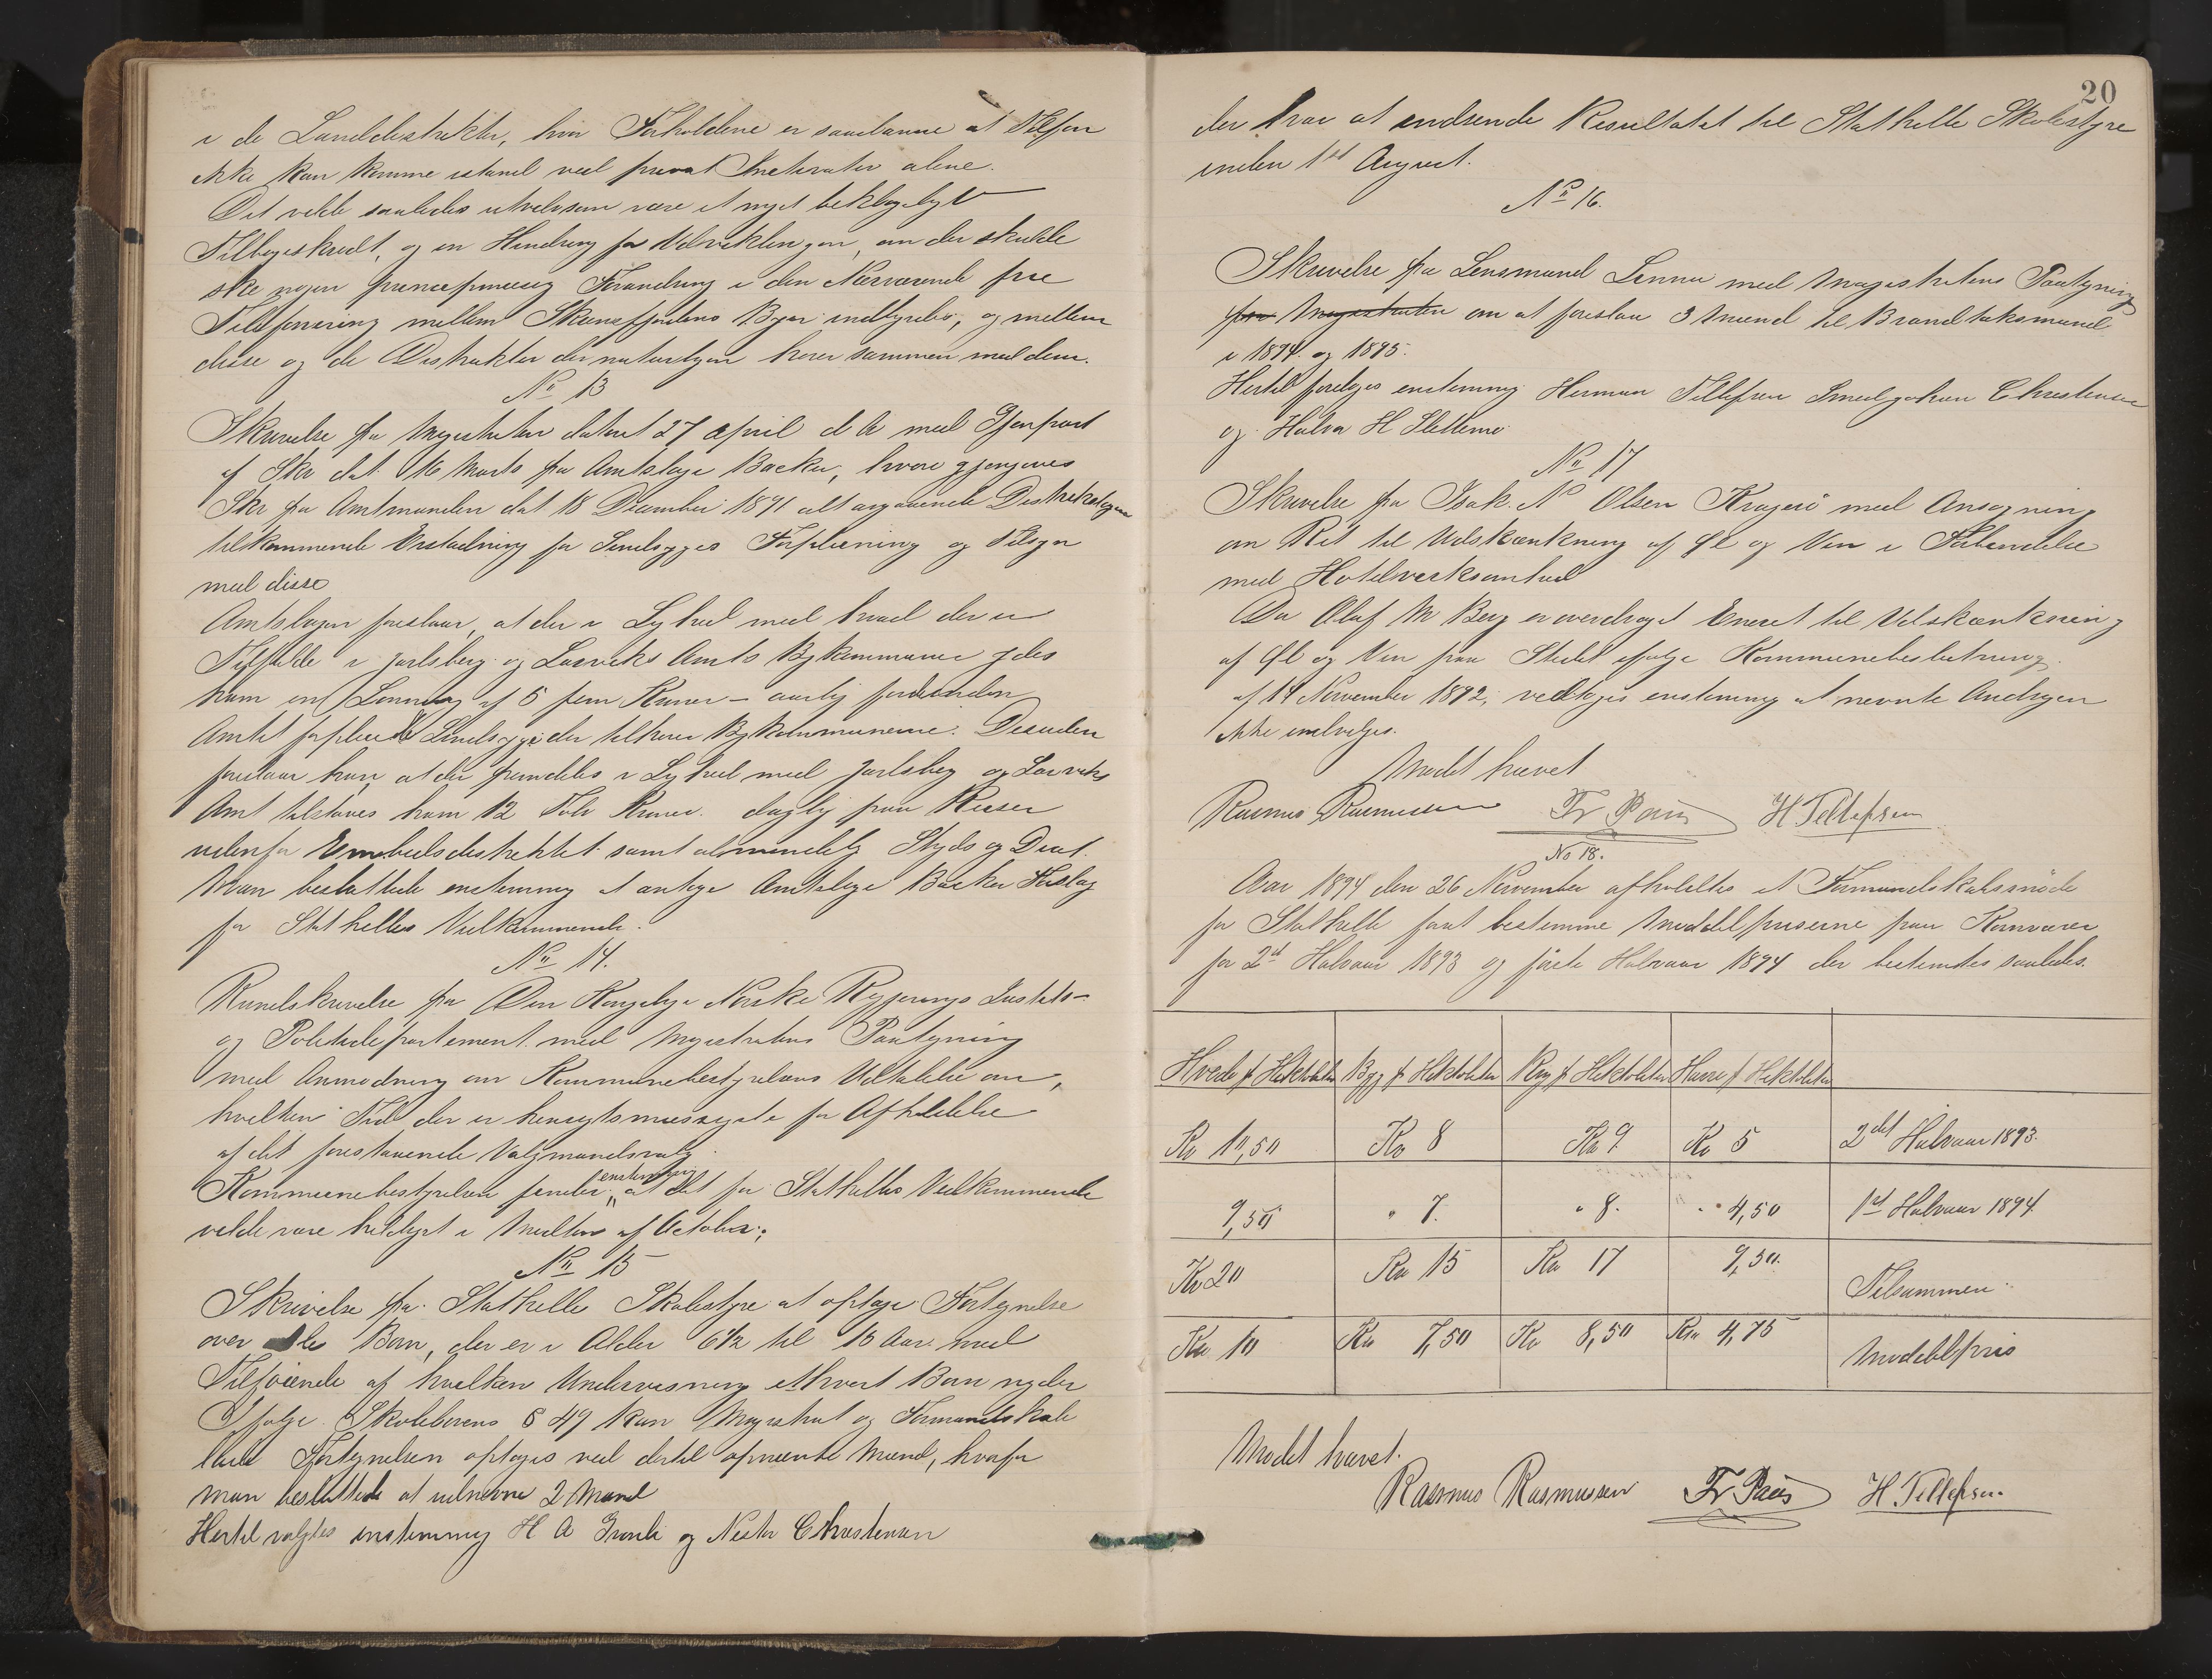 i de Landdistrikter, hvor Forholdene er saadanne at Telefon
ikke kan komme istand ved privat Initiativ alene.
Det vilde saaledes utvilsom være et meget beklageligt
Tilbageskridt, og en Hindring for Udviklingen, om der skulde
ske nogen principmæssig Forandring i den Nærværende frie
Telefonering mellem Skiensfjordens Byer indbyrdes, og mellem
disse og de Distrikter der naturligen hører sammen med dem.
No 13
Skrivelse fra Magistraten dateret 27 april d A med Gjenpart
af Skr dat. 16 Marts fra Amtslæge Backer, hvori gjengives
Skr fra Amtmanden dat 18 December 1891 alt angaaende Distriktslægen
tilkommende Erstadning for Sindsyges Forpleining og Tilsyn
med disse
Amtslægen foreslaar, at der i Lighed med hvad der er
Tilfælde i Jarlsberg og Laurviks Amts Bykommuner ydes
ham en Lønning af 5 fem Kroner - aarlig for hver inden
Amtet forpleiede Sindsyge der tilhører Bykommunerne. Desuden
foreslaar han, at der fremdeles i Lighed med Jarlsberg og Laurviks
Amt tilstaaes ham 12 Tolv Kroner daglig paa Reiser
udenfor Embedsdistriktet samt almindelig Skyds og Diæt.
Man besluttede enstemmig at antage Amtslæge Backer Forslag
for Stathelles Vedkommende.
No 14.
Rundskrivelse fra Den Kongelige Norske Regjerings Justits-
og Politidepartement med Magistratens Paategning
med Anmodning om Kommunebestyrelsens Udtalelse om,
hvilken Tid der er hensigtsmæssigste for Afholdelse
af det forestaaende Valgmandsvalg.
Kommunebestyrelsen finder enstemmig at det for Stathelles Vedkommende
vilde være heldigst i Midten af October.
No 15
Skrivelse fra Stathelle Skolestyre at optage Fortegnelse
over alle Børn, der er i Alder 6½ til 15 Aar med
Tilføiende af hvilken Undervisning ethvert Barn nyder
Ifølge Skolelovens § 49 kan Magistrat og Formandskab
lade Fortegnelsen optages ved dertil opnævnte Mænd, hvorfor
man besluttede at udnævne 2 Mænd
Hertil valgtes enstemmig H A Gromli og Nesta Christensen
20
der har at indsende Resultatet til Stathelle Skolestyre
inden 1st August.
No 16.
Skrivelse fra Lensmand Linna med Magistratens Paategning
fra Magistraten om at foreslaa 3 Mænd til Brandtakstmænd
i 1894 og 1895.
Hertil foreloges enstemmig Herman Tellefsen Smed Johan Christensen
og Halvor H Slettemo
No 17
Skrivelse fra Isak. No Olsen Kragerø med Ansøgning
om Ret til Udskænkning af Øl og Vin i Forbindelse
med Hotelvirksomhed
Da Olaf M Berg er overdraget Eneret til Udskænkning
af Øl og Vin paa Stedet ifølge Kommunebeslutning
af 14 November 1892, vedtoges enstemmig at nævnte Andragen
ikke indvilges.
Mødet hævet
Rasmus Rasmussen Fr Paus H Tellefsen
No 18.
Aar 1894 den 26 November afholdtes et Formandskabsmøde
for Stathelle for at bestemme Middelpriserne paa Kornvarer
for 2d Halvaar 1893 og første Halvaar 1894 der bestemtes saaledes.
Hvede pr Hektoliter Byg pr Hektoliter Rug pr Hektoliter Havre pr Hektoliter
Kr 10,50 Kr 8 Kr 9 Kr 5 2det Halvaar 1893.
9,50 " 7. " 8. " 4,50 1st Halvaar 1894
Kr 20 Kr 15 Kr 17 9,50. Tilsammen
Kr 10 Kr 7,50 Kr 8,50 Kr 4,75 Middelpris
Mødet hævet.
Rasmus Rasmussen Fr Paus H Tellefsen